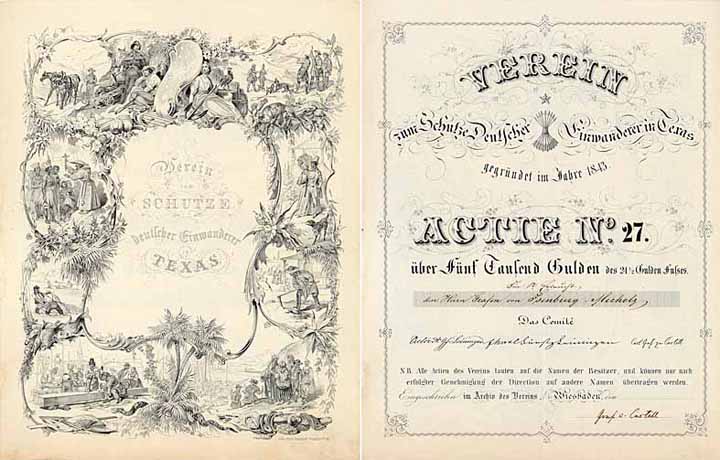 Verein
zum
SCHUTZE
deutscher Einwanderer
TEXAS
VEREIN
zum Schutze Deutscher Einwanderer in Texas
gegründet im Jahre 1843.
ACTIE No. 27.
über Fünf Tausend Gulden des 24½ Gulden Fusses.
den Herrn Grafen von Isenburg-Meerholz
Das Comité
Carl Graf zu Castell
N B. Alle Actien des Vereins lauten auf die Namen der Besitzer, und können nur nach
erfolgter Genehmigung der Direction auf andere Namen übertragen werden.
Eingeschrieben im Archiv des Vereins Wiesbaden, den
Graf v. Castell